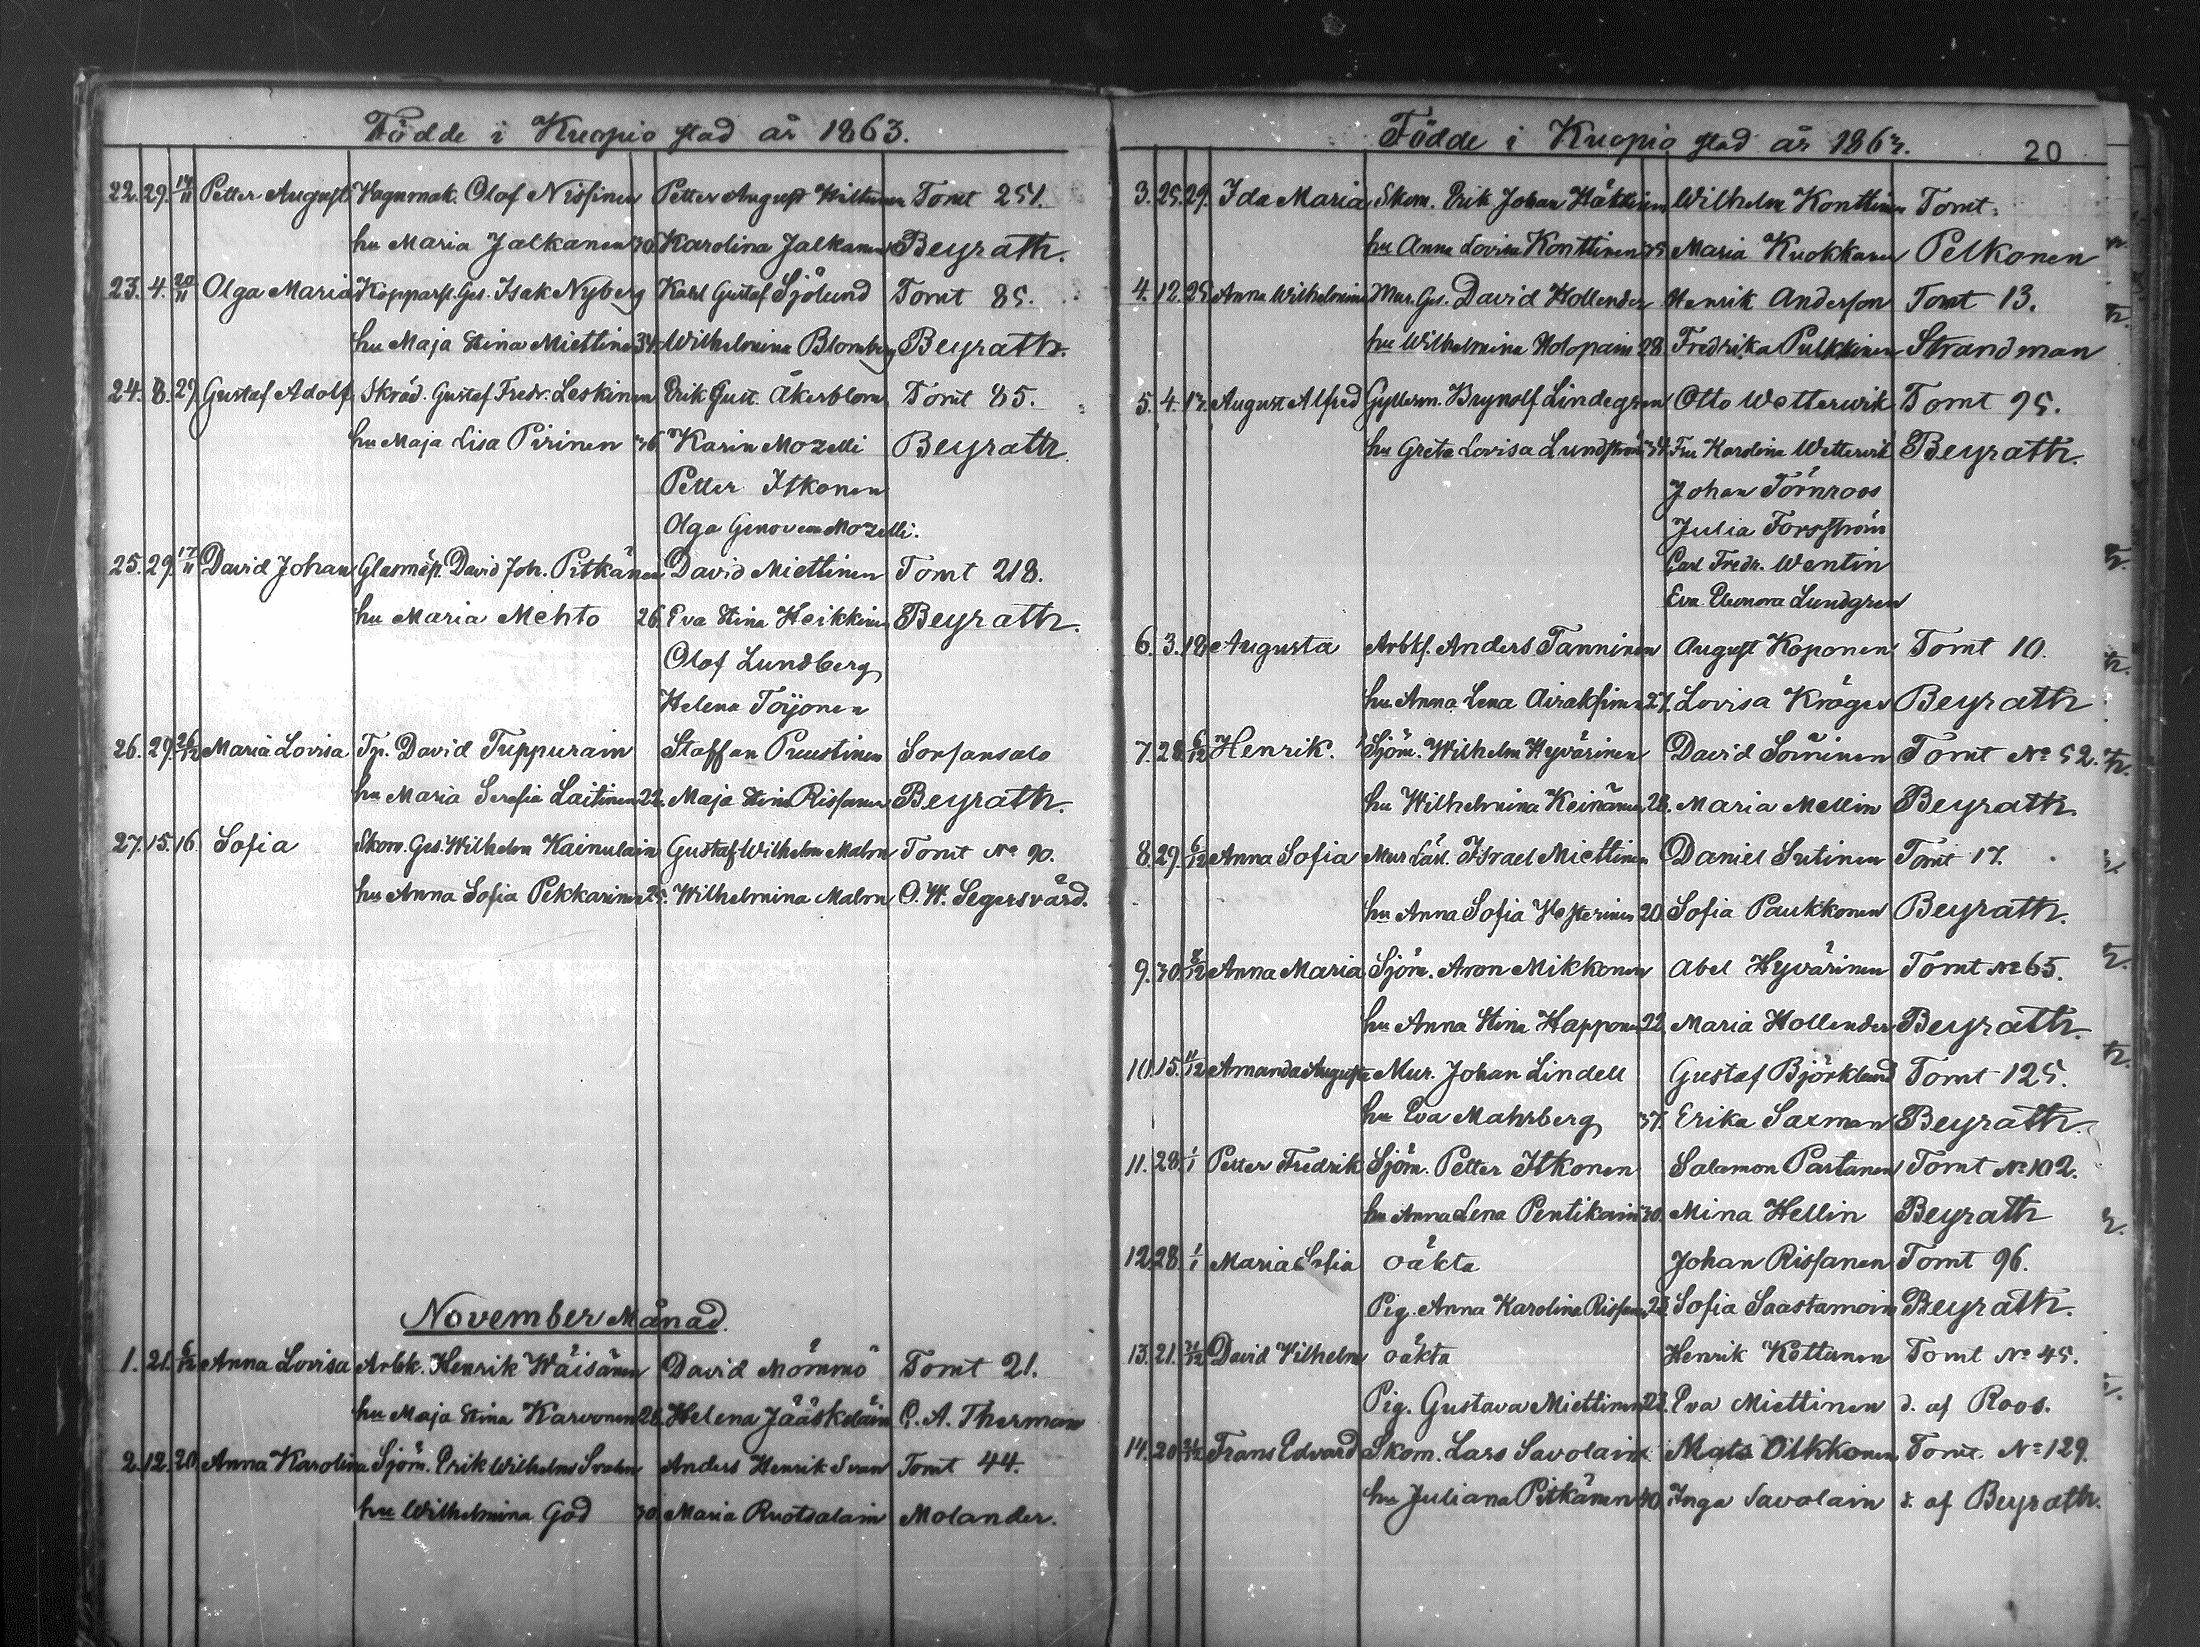 Födde i Kuopio stad år 1863.
22. 29. 14/11 Petter August Vagnmak. Olof Nissinen Petter August Hiltunen Tomt 251.
hu Maria Jalkanen 30 Karolina Jalkanen Beyrath.
23. 4. 20/11 Olga Maria Kopparsl. Ges. Isak Nyberg Karl Gustaf Sjölund Tomt 85.
hu Maja Stina Miettine 34. Wilhelmina Blomberg Beyrath.
24. 8. 29 Gustaf Adolf Skräd. Gustaf Fredr. Leskinen Erik Gust. Åkerblom Tomt 85.
hu Maja Lisa Pirinen 36 Karin Mozelli Beyrath
Petter Itkonen
Olga Genoveva Mozelli.
25. 29. 17/11 David Johan Glasmäst. David Joh. Pitkänen David Miettinen Tomt 218.
hu Maria Mehto 26 Eva Stina Heikkinen Beyrath.
Olof Lundberg
Helena Töyonen
26. 29. 26/12 Maria Lovisa Tp. David Tuppurain Staffan Puustinen Sorsansalo
hu Maria Serafia Laitinen 22. Maja Stina Rissanen Beyrath.
27. 15. 16. Sofia Skom. Ges. Wilhelm Kainulain Gustaf Wilhelm Malm Tomt No 90.
hu Anna Sofia Pekkarinen 25. Wilhelmina Malm O. W. Segersvärd.
November Månad.
1. 21. 6/12 Anna Lovisa Arbk. Henrik Wäisänen David Mömmö Tomt 21.
hu Maja Stina Karvonen 28. Helena Jääskeläin G. A. Therman
2. 12. 20 Anna Karolina Sjöm. Erik Wilhelm Svahn Anders Henrik Svan Tomt 44.
hu Wilhelmina God 30 Maria Ruotsalain Molander.
Födde i Kuopio stad år 1863. 20
3. 25. 29. Ida Maria Skom. Erik Johan Hättinen Wilhelm Konttinen Tomt.
hu Anna Lovisa Konttinen 35 Maria Kuokkanen Pelkonen
4. 12. 25 Anna Wilhelmina Mur. Ges. David Hollender Henrik Anderson Tomt 13.
hu Wilhelmina Holopain 28. Fredrika Pulkkinen Strandman
5. 4. 13. August Alfred Gyllerm. Brynolf Lindegren Otto Wetterwik Tomt 95.
hu Greta Lovisa Lundström 34. Fru Karolina Wetterwik Beyrath.
Johan Törnroos
Julia Forsström
Carl Fredr. Wentin
Eva Eleonora Lundgren
6. 3. 18 Augusta Arbkl. Anders Tanninen August Koponen Tomt 10.
hu Anna Lena Airaksinen 27. Lovisa Kröger Beyrath
7. 28. 6/12 Henrik. Sjöm. Wilhelm Hyvärinen David Soininen Tomt No 52.
hu Wilhelmina Keinänen 28. Maria Mellin Beyrath.
8. 29. 6/12 Anna Sofia Mur Lärl. Israel Miettinen Daniel Sutinen Tomt 17.
hu Anna Sofia Hesterinen 20. Sofia Paukkonen Beyrath.
9. 30. 8/12 Anna Maria Sjöm. Aron Mikkonen Abel Hyvärinen Tomt No 65.
hu Anna Stina Happonen 22. Maria Hollender Beyrath.
10. 15. 11/12 Amanda Augusta Mur. Johan Lindell Gustaf Björklund Tomt 125.
hu Eva Mahrberg 37. Erika Saxman Beyrath.
11. 28. 1/1 Petter Fredrik Sjöm. Petter Itkonen Salamon Partanen Tomt No 102.
hu Anna Lena Pentikain 30. Mina Hellin Beyrath
12. 28. 1/1 Maria Sofia oäkta Johan Rissanen Tomt 96.
Pig. Anna Karolina Rissanen 23. Sofia Saastamoin Beyrath.
13. 21. David Vilhelm oäkta Henrik Kettunen Tomt No 45.
Pig. Gustava Miettinen 23. Eva Miettinen d. af Roos.
14. 20 Frans Edvard Skom. Lars Savolain Mats Oikkonen Tomt. No 129.
hu Juliana Pitkänen 40. Inga Savolain d. af Beyrath.